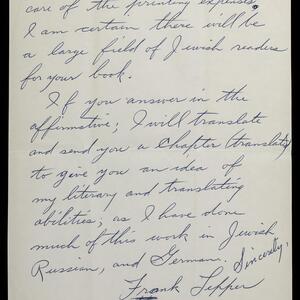 care of the printing expenses.
I am certain there will be
a large field of Jewish readers
for your book.
If you answer in the
affirmative; I will translate
and send you a Chapter (translated)
to give you an idea of
my literary and translating
abilities; as I have done
much of this work in Jewish
Russian, and German. Sincerely,
Frank Lepper